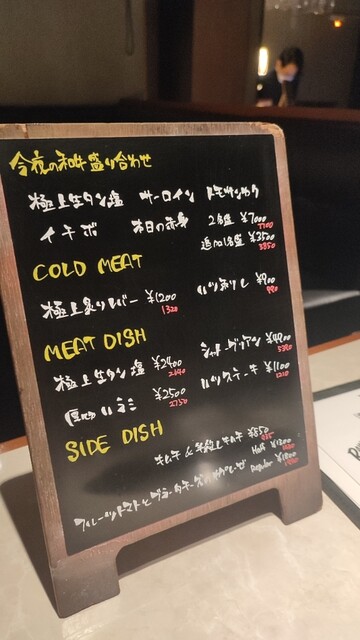 今夜の和牛盛り合わせ
極上生タン塩 サーロイン トモサンカク
イチボ 本日の赤身 2名盛 ¥7000
7700
追加1名盛 ¥3500
3850
COLD MEAT
極上炙りレバー ¥1200
1320
ハツ ¥900
990
MEAT DISH
極上生タン塩 ¥2400
2640
シャトーブリアン ¥4900
5390
厚切ハラミ ¥2500
2750
ハツステーキ ¥1100
1210
SIDE DISH
キムチ & キムチ ¥850
935
フルーツトマトとブラータチーズのカプレーゼ Half ¥1200
1320
Regular